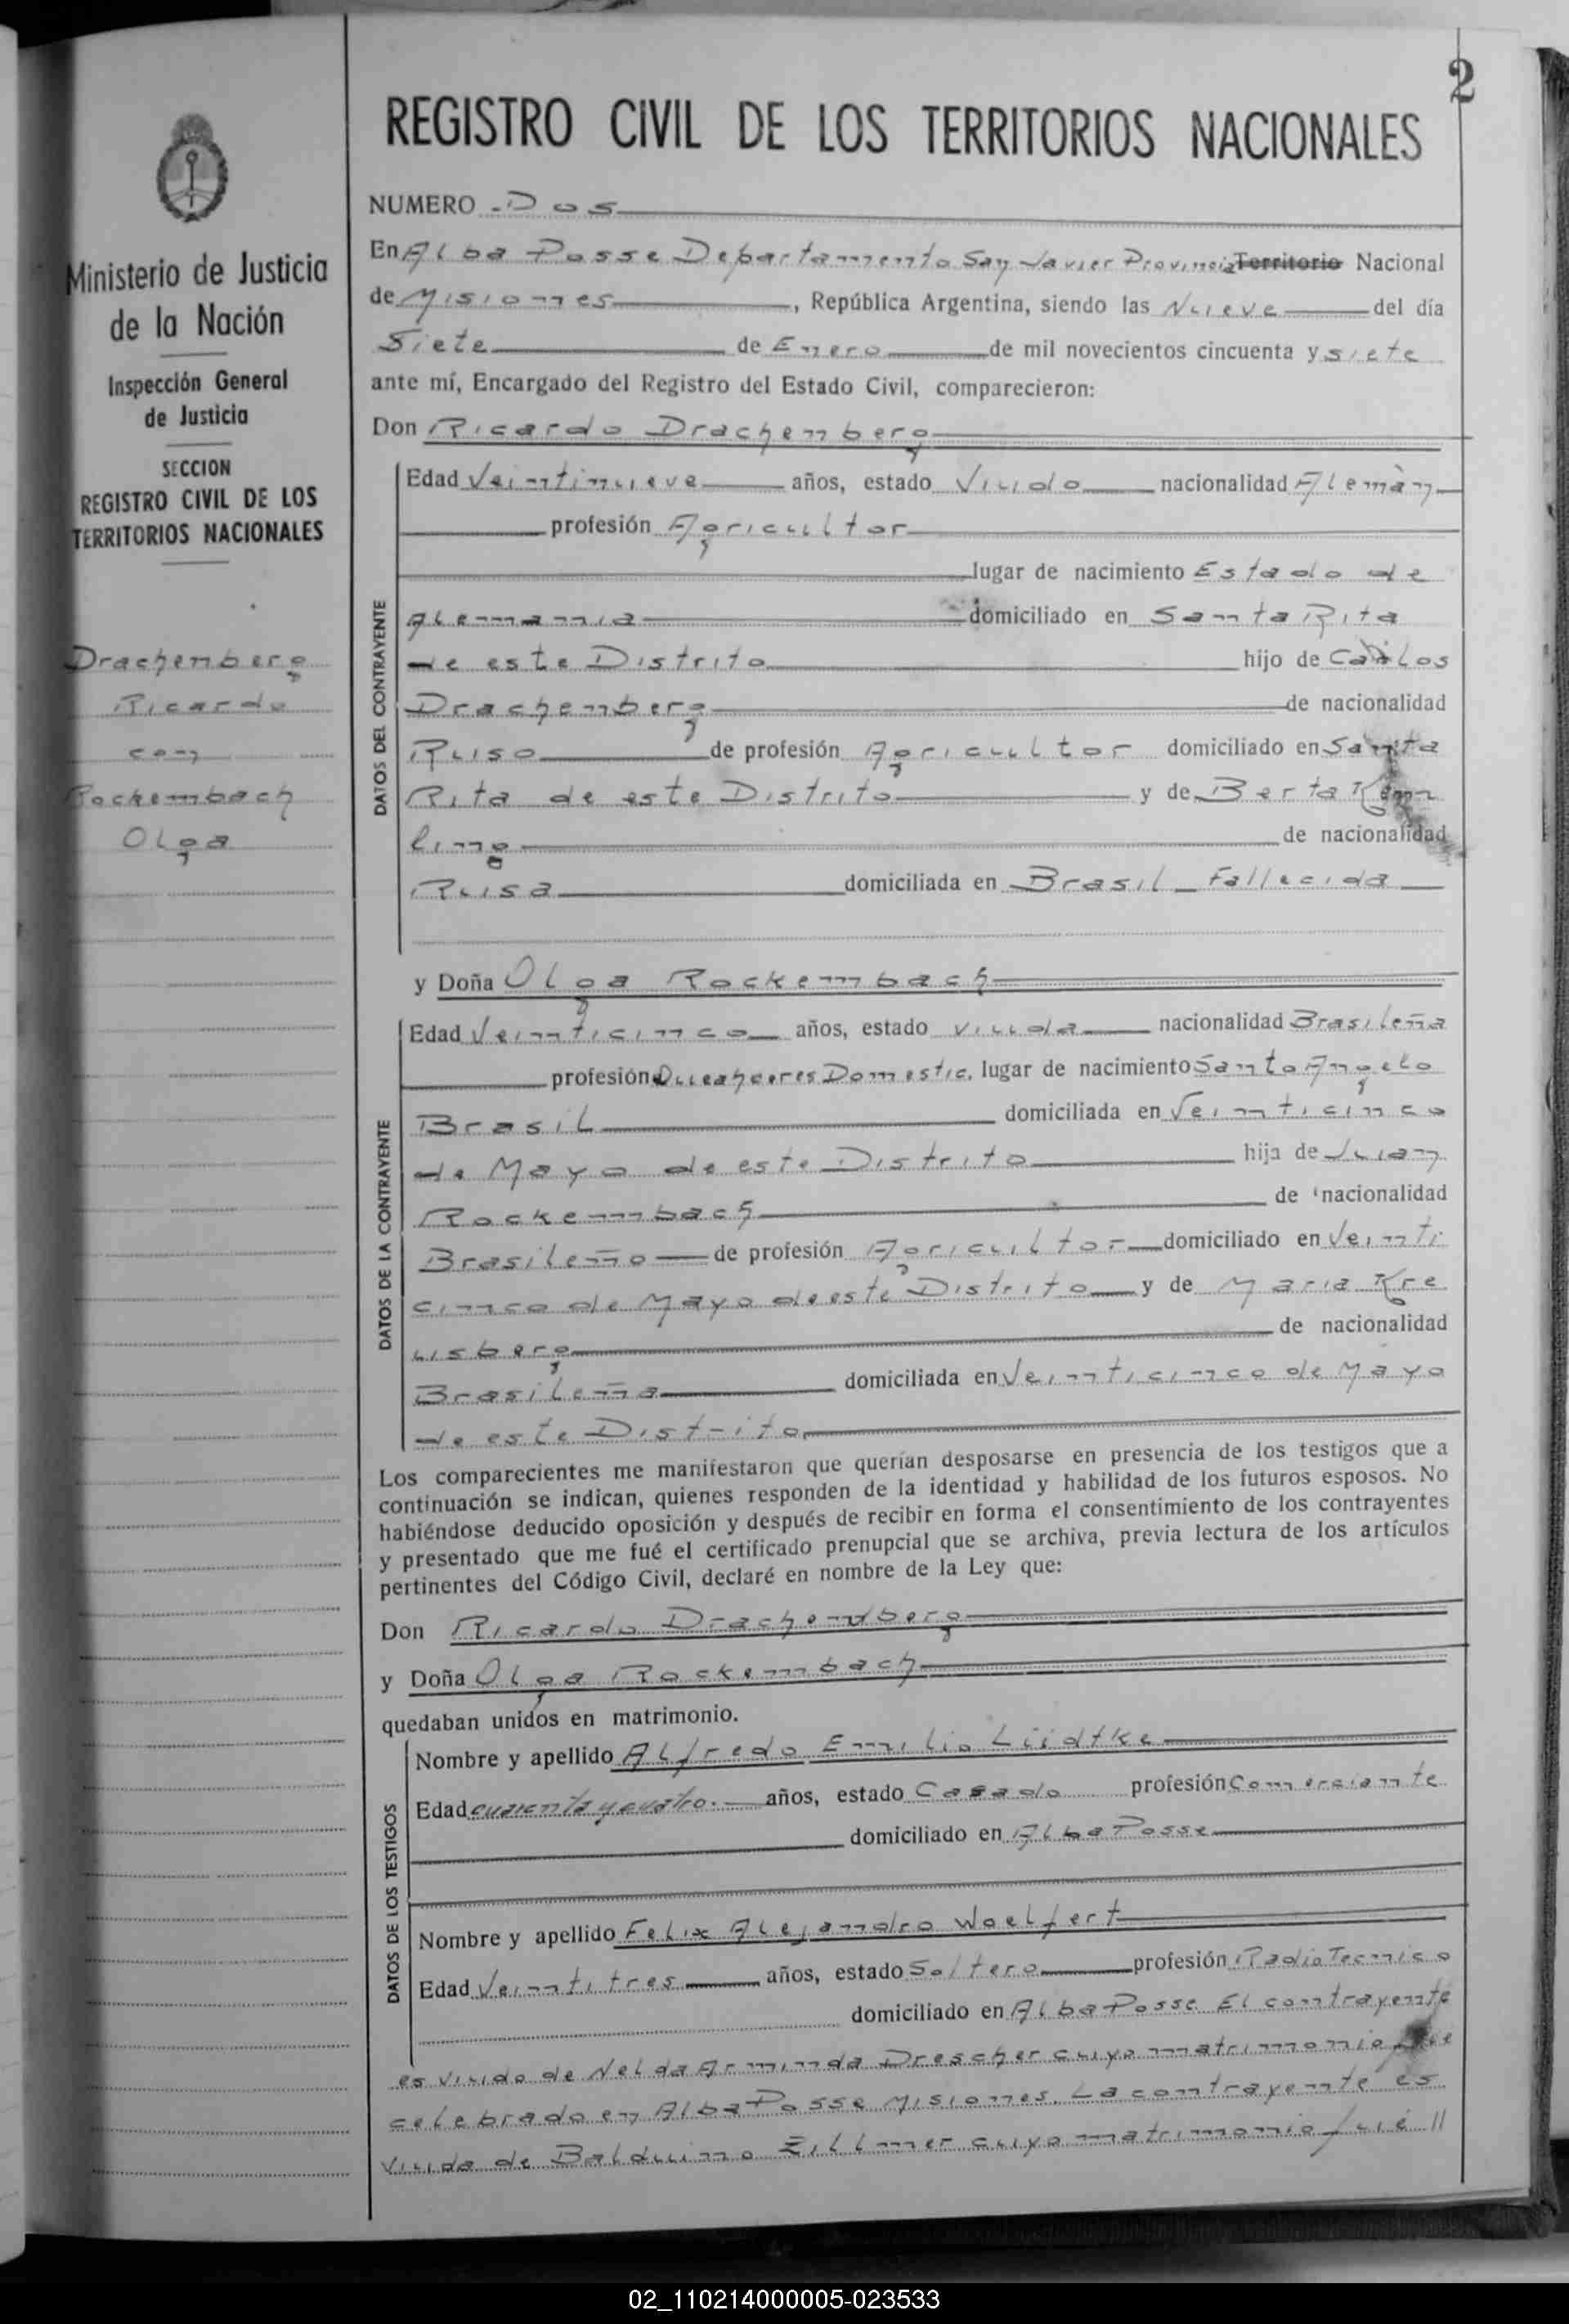 2
REGISTRO CIVIL DE LOS TERRITORIOS NACIONALES
Ministerio de Justicia
de la Nación
Inspección General
de Justicia
SECCION
REGISTRO CIVIL DE LOS
TERRITORIOS NACIONALES
Drachenberg
Ricardo
con
Rockembach
Olga
NUMERO Dos
En Alba Posse Departamento San Javier Provincia Territorio Nacional
de Misiones, República Argentina, siendo las Nueve del día
Siete de Enero de mil novecientos cincuenta y siete
ante mí, Encargado del Registro del Estado Civil, comparecieron:
Don Ricardo Drachemberg
DATOS DEL CONTRAYENTE
Edad Veintinueve años, estado Viudo nacionalidad Alemán
profesión Agricultor
lugar de nacimiento Estado de
Alemania domiciliado en Santa Rita
de este Distrito hijo de Carlos
Drachemberg de nacionalidad
Ruso de profesión Agricultor domiciliado en Santa
Rita de este Distrito y de Berta
ling de nacionalidad
Rusa domiciliada en Brasil Fallecida
y Doña Olga Rockembach
DATOS DE LA CONTRAYENTE
Edad Veinticinco años, estado viuda nacionalidad Brasileña
profesión Domestic. lugar de nacimiento Santo Angelo
Brasil domiciliada en Veinticinco
de Mayo de este Distrito hija de Juan
Rockembach de nacionalidad
Brasileño de profesión Agricultor domiciliado en Veinti
cinco de Mayo de este Distrito y de Maria Kre
usberg de nacionalidad
Brasileña domiciliada en Veinticinco de Mayo
de este Distrito
Los comparecientes me manifestaron que querían desposarse en presencia de los testigos que a
continuación se indican, quienes responden de la identidad y habilidad de los futuros esposos. No
habiéndose deducido oposición y después de recibir en forma el consentimiento de los contrayentes
y presentado que me fué el certificado prenupcial que se archiva, previa lectura de los artículos
pertinentes del Código Civil, declaré en nombre de la Ley que:
Don Ricardo Drachemberg
y Doña Olga Rockembach
quedaban unidos en matrimonio.
DATOS DE LOS TESTIGOS
Nombre y apellido Alfredo Emilio Lüdtke
Edad cuarenta y cuatro. años, estado Casado profesión Comerciante
domiciliado en Alba Posse
Nombre y apellido Felix Alejandro Woelfert
Edad Veintitres años, estado Soltero profesión Radio Tecnico
domiciliado en Alba Posse El contrayente
es viudo de Nelda Arminda Drescher cuyo matrimonio fue
celebrado en Alba Posse Misiones. La contrayente es
viuda de Balduino Zillmer cuyo matrimonio fué //
02_110214000005-023533